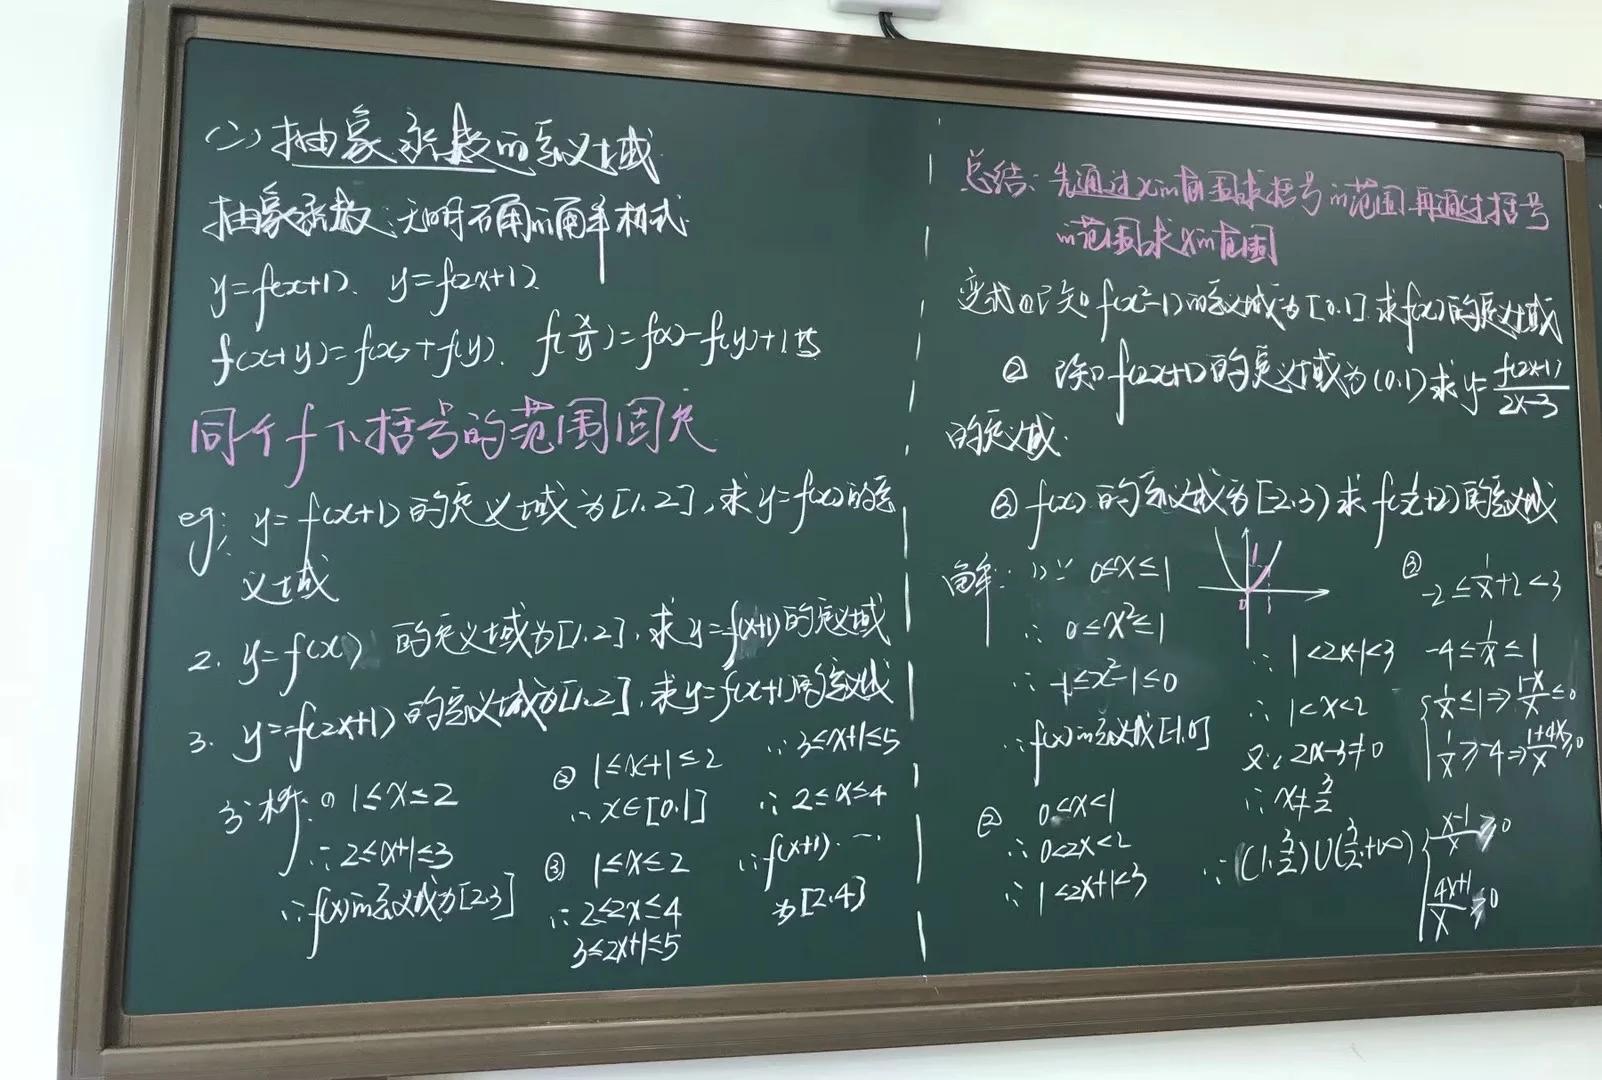 (二)抽象函数的定义域
抽象函数:无明确的解析式
y=f(x+1). y=f(2x+1)
f(x+y)=f(x)+f(y). f(x/y)=f(x)-f(y)+1等
同个f下括号的范围固定
eg: y=f(x+1)的定义域为[1.2],求y=f(x)的定
义域
2. y=f(x) 的定义域为[1.2],求y=f(x+1)的定义域
3. y=f(2x+1)的定义域为[1.2],求y=f(x+1)的定义域
分析:① 1≤x≤2
∴2≤x+1≤3
∴f(x)的定义域为[2.3]
② 1≤x+1≤2
∴x∈[0.1]
③ 1≤x≤2
∴2≤2x≤4
3≤2x+1≤5
∴3≤x+1≤5
∴2≤x≤4
∴f(x+1)…
为[2.4]
总结:先通过x的范围求括号的范围再通过括号
的范围求x的范围
变式①已知f(x²-1)的定义域为[0.1]求f(x)的定义域
② 已知f(2x+1)的定义域为(0.1)求y=f(2x-1)/(2x-3)
的定义域.
③ f(x)的定义域为[-2.3)求f(1/x+2)的定义域
解:1)∵0≤x≤1
∴0≤x²≤1
∴-1≤x²-1≤0
∴f(x)的定义域[-1.0]
② 0<x<1
∴0<2x<2
∴1<2x+1<3
0 1
∴1<2x-1<3
∴1<x<2
又∵2x-3≠0
∴x≠3/2
∴(1.3/2)∪(3/2.+∞)
③
-2≤1/x+2<3
-4≤1/x≤1
1/x≤1⇒(1-x)/x≤0
1/x≥-4⇒(1+4x)/x≥0
(x-1)/x≥0
(4x+1)/x≥0